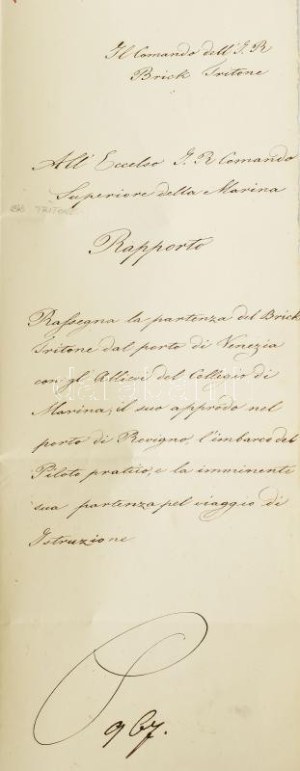 Il Comando dell' I. R.
Brick Tritone
All' Eccelso I. R. Comando
Superiore della Marina
Rapporto
Rassegna la partenza del Brick
Tritone dal porto di Venezia
con gl' Allievi del Collegio di
Marina, il suo approdo nel
porto di Rovigno, l'imbarco del
Piloto pratico, e la imminente
sua partenza pel viaggio di
Istruzione
967.